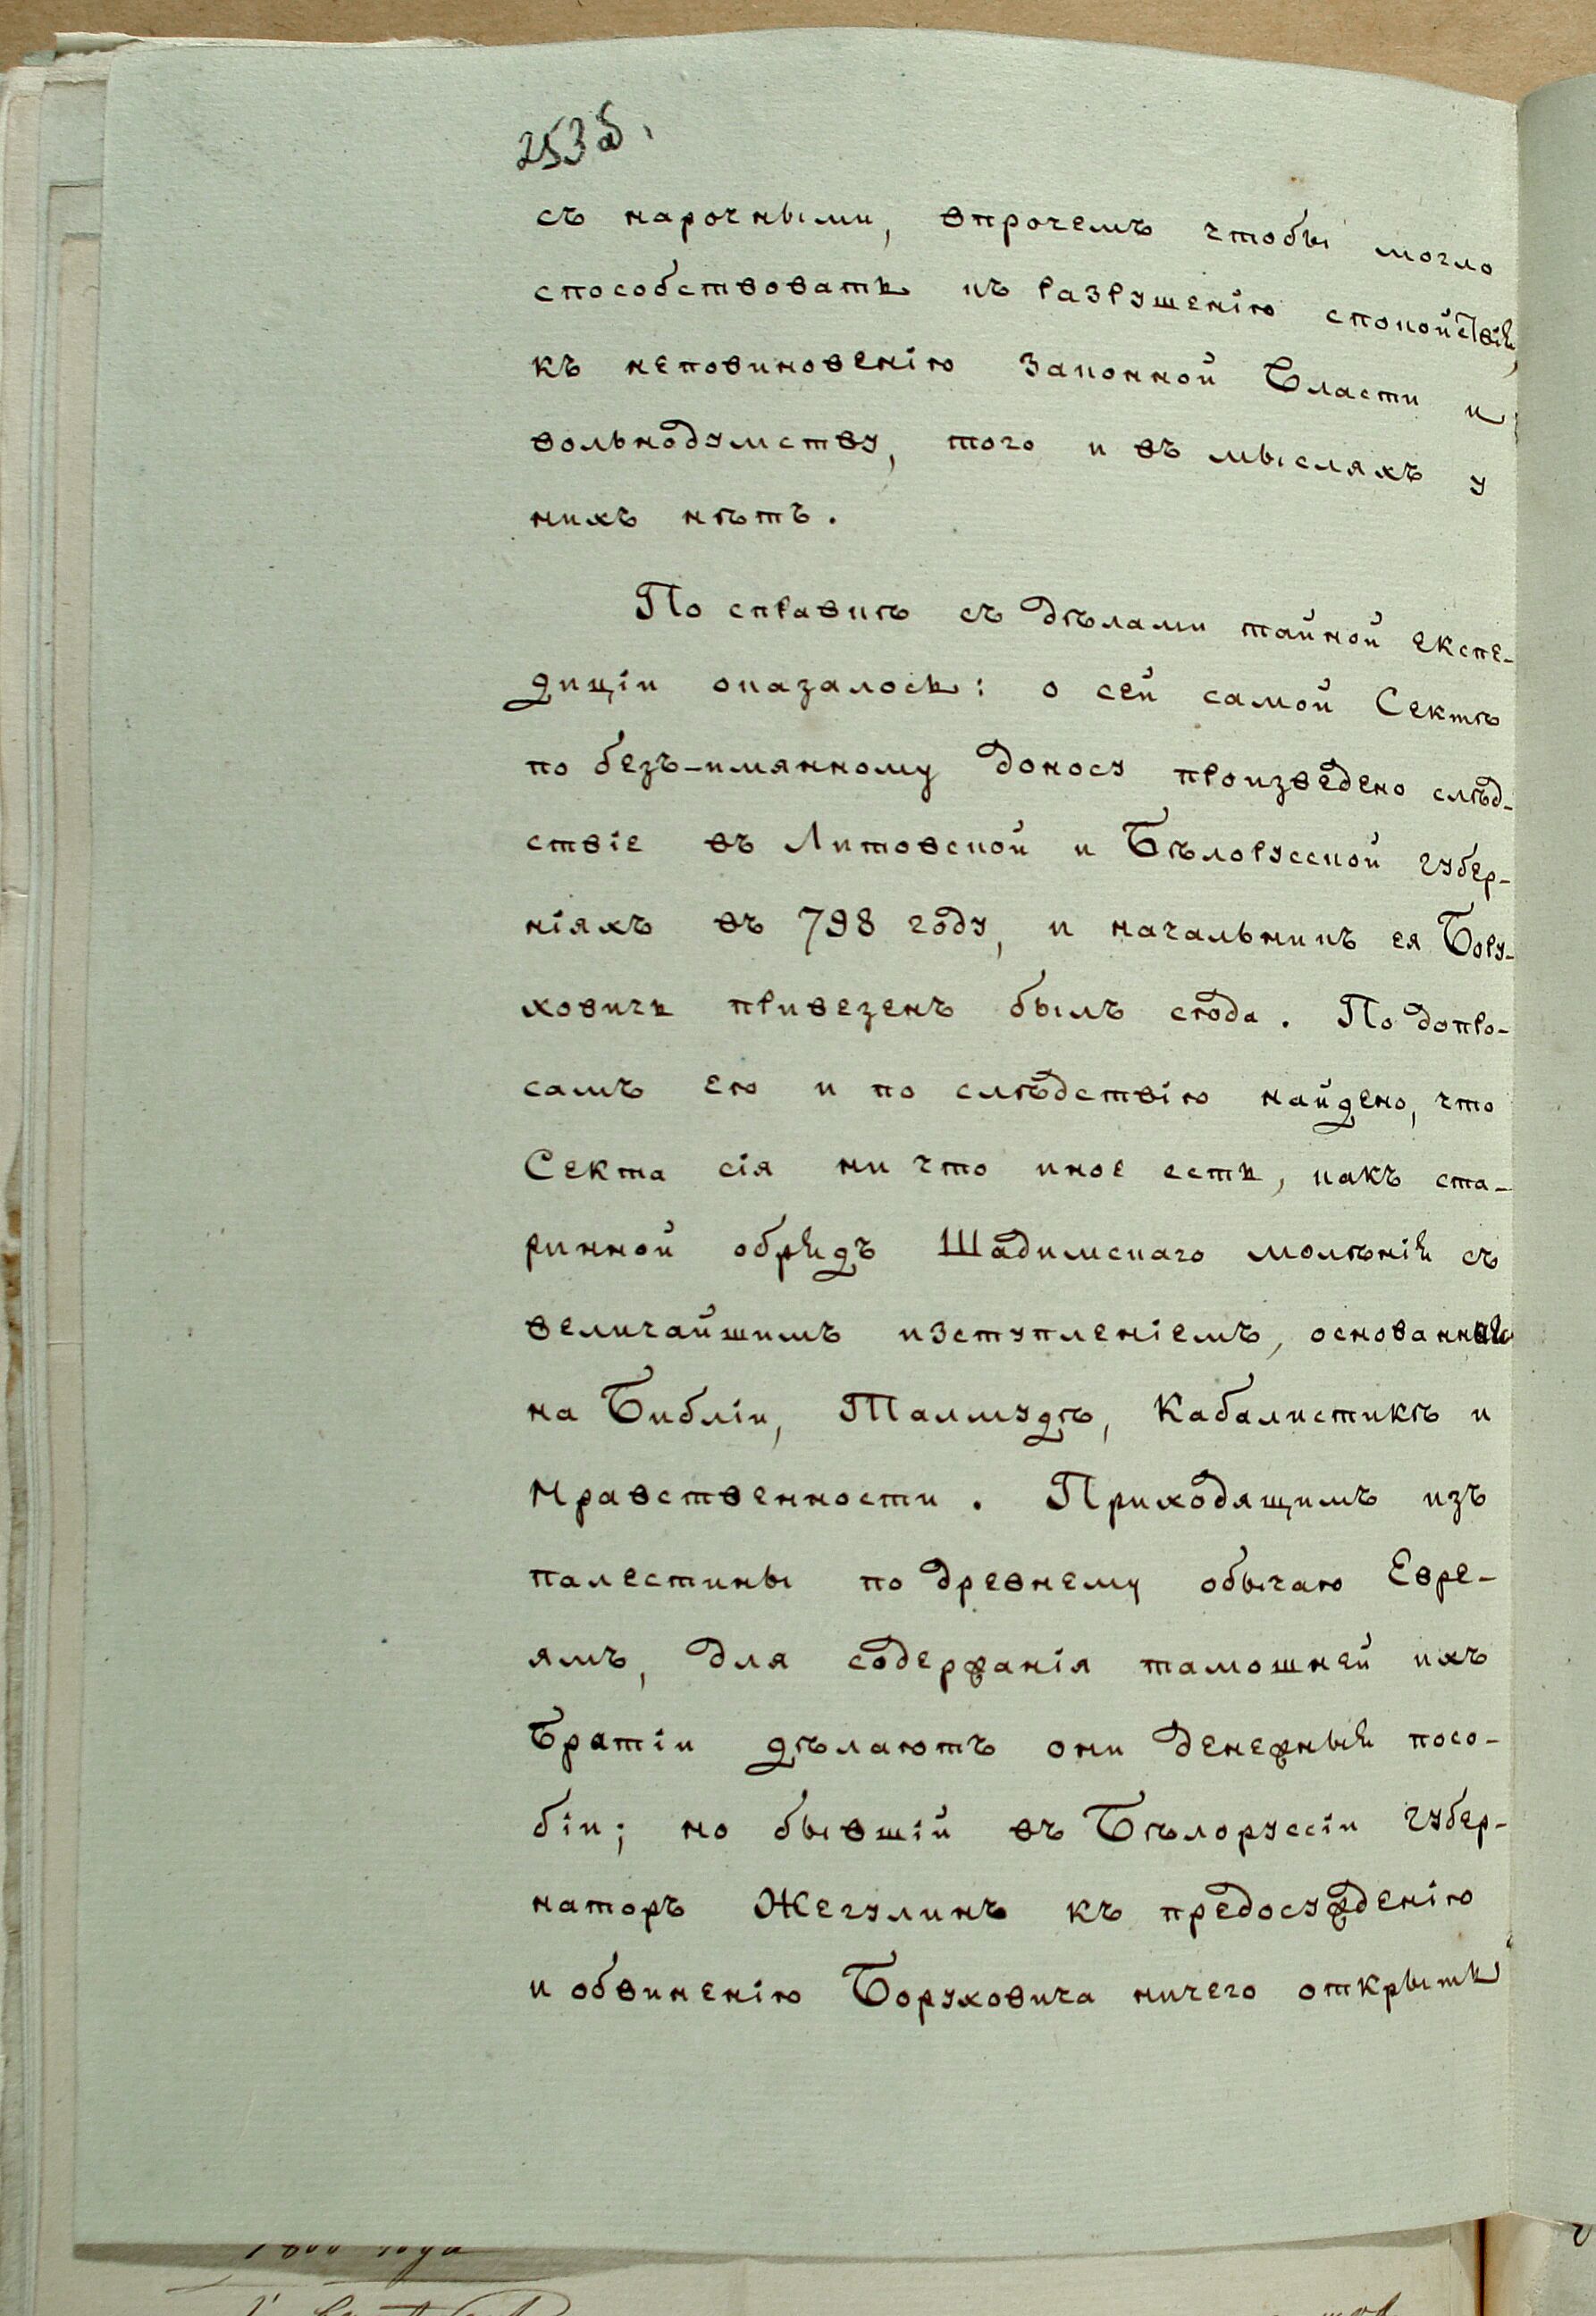 253б.
съ нарочными, впрочемъ чтобы могло
способствовать къ разрушенію спокойствія,
къ неповиновенію законной Власти и
вольнодумству, того и въ мысляхъ у
нихъ нѣтъ.
По справкѣ съ дѣлами тайной експе-
диціи оказалось: о сей самой Сектѣ
по безъ-имянному доносу произведено слѣд-
ствіе въ Литовской и Бѣлорусской губер-
ніяхъ въ 798 году, и начальникъ ея Бору-
ховичь привезенъ былъ сюда. По допро-
самъ ею и по слѣдствію найдено, что
Секта сія ни что иное есть, какъ ста-
ринной обрядъ Шадимскаго моленія съ
величайшимъ изступленіемъ, основанный
на Библіи, Талмудѣ, Кабалистикѣ и
Нравственности. Приходящимъ изъ
палестины по древнему обычаю Евре-
ямъ, для содержанія тамошней ихъ
Братіи дѣлаютъ они денежныя посо-
біи; но бывшій въ Бѣлоруссіи губер-
наторъ Жегулинъ къ предосужденію
и обвиненію Боруховича ничего открыть
1800 года